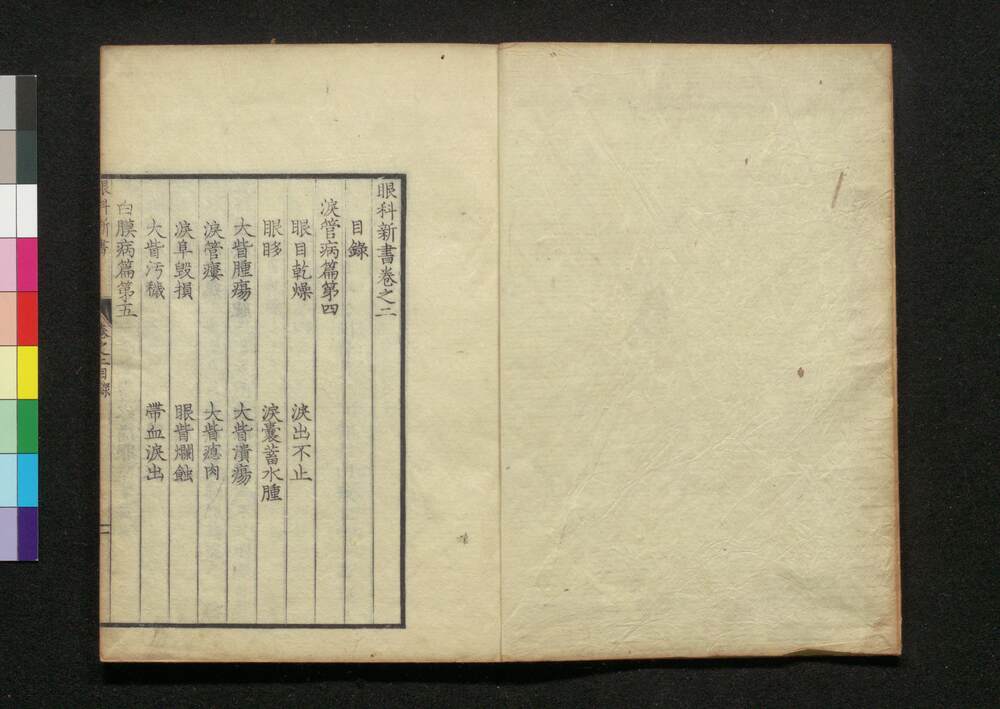 眼科新書卷之二
目錄
淚管病篇第四
眼目乾燥
淚出不止
眼眵
淚囊蓄水腫
大眥腫瘍
大眥潰瘍
淚管瘻
大眥瘜肉
淚阜毀損
眼眥爛蝕
大眥汚穢
帶血淚出
白膜病篇第五
眼科新書
卷之二目錄
一